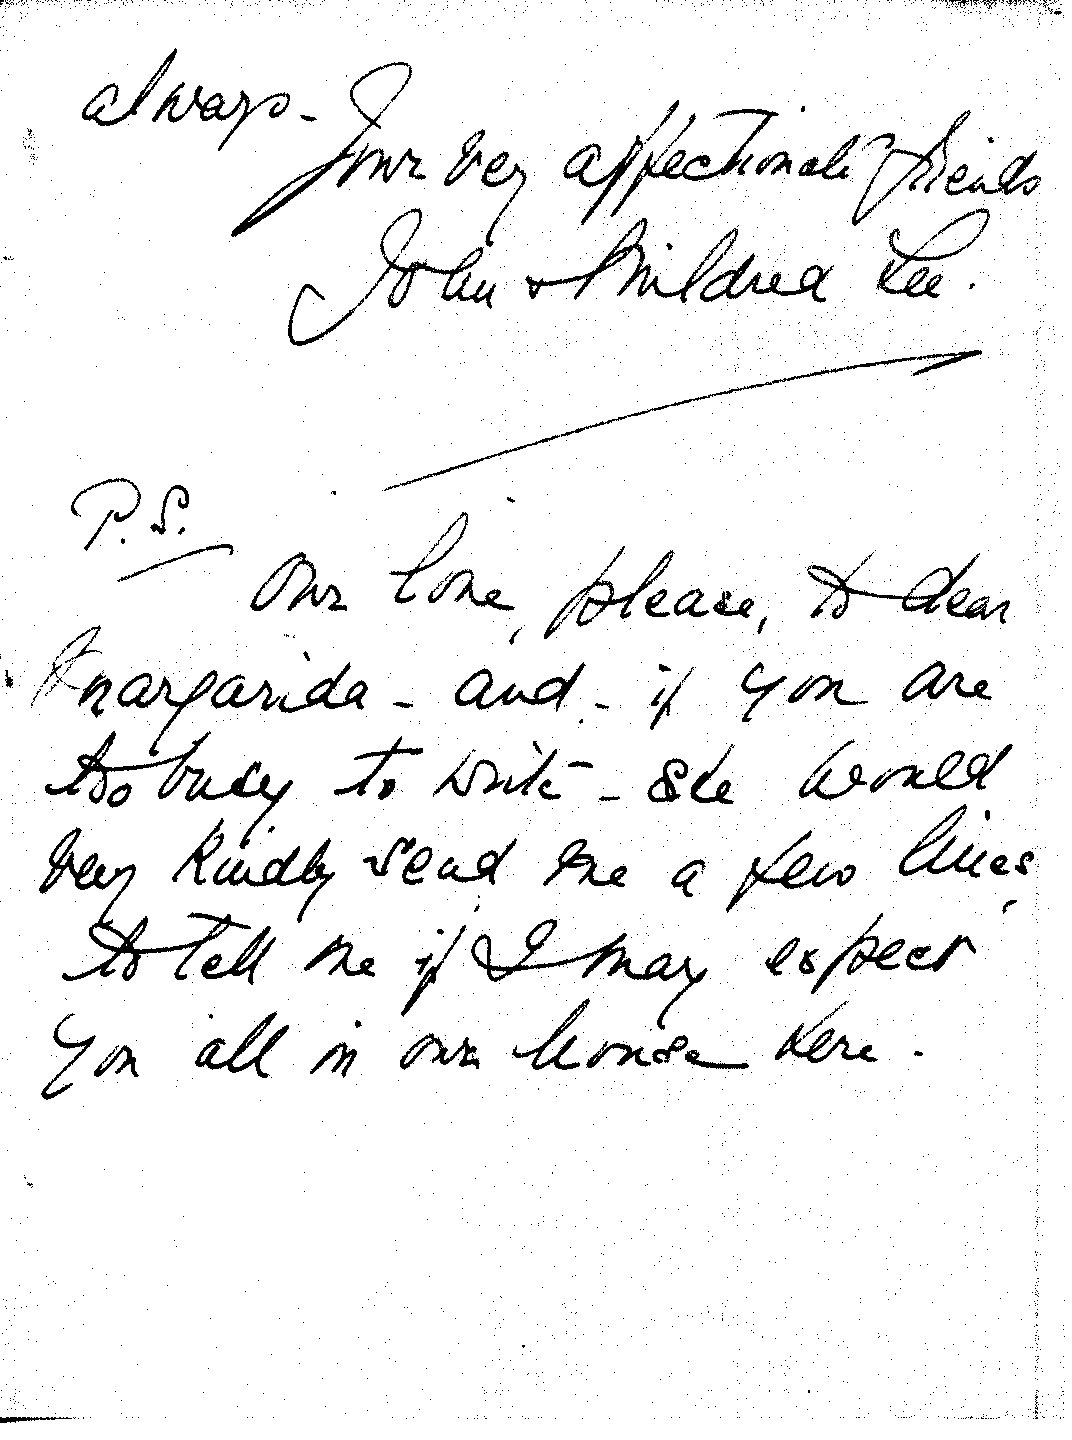 always -
Your very affectionate friends
John & Mildred Lee.
P.S.
Our love, please, to dear
Margarida - and - if you are
too busy to write - she would
very kindly send me a few lines,
to tell me if I may expect
you all in our house here.